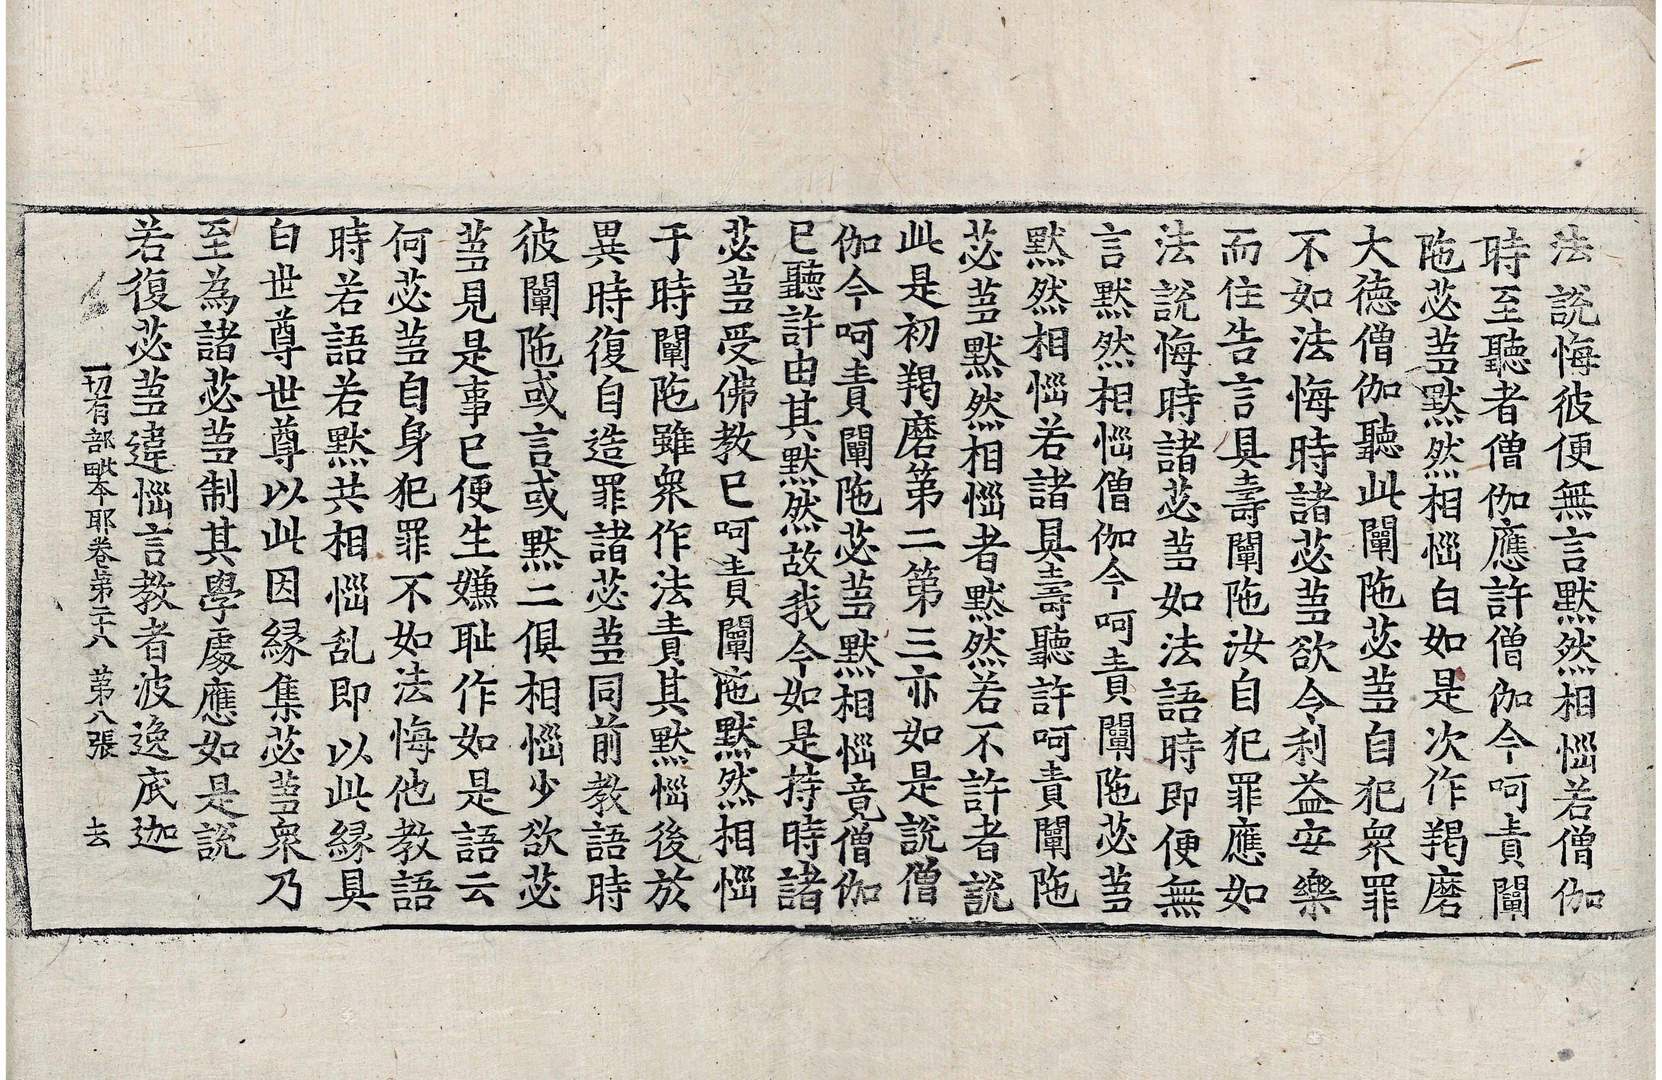 法說悔彼便無言默然相惱若僧伽
時至聽者僧伽應許僧伽今呵責闡
陁苾芻默然相惱白如是次作羯磨
大德僧伽聽此闡陁苾芻自犯衆罪
不如法悔時諸苾芻欲令利益安樂
而住告言具壽闡陁汝自犯罪應如
法說悔時諸苾芻如法語時即便無
言默然相惱僧伽今呵責闡陁苾芻
默然相惱若諸具壽聽許呵責闡陁
苾芻默然相惱者默然若不許者說
此是初羯磨第二第三亦如是說僧
伽今呵責闡陁苾芻默然相惱竟僧伽
已聽許由其默然故我今如是持時諸
苾芻受佛教已呵責闡陁默然相惱
于時闡陁雖衆作法責其默惱後於
異時復自造罪諸苾芻同前教語時
彼闡陁或言或默二俱相惱少欲苾
芻見是事已便生嫌耻作如是語云
何苾芻自身犯罪不如法悔他教語
時若語若默共相惱乱即以此緣具
白世尊世尊以此因緣集苾芻衆乃
至為諸苾芻制其學處應如是說
若復苾芻違惱言教者波逸底迦
一切有部毗奈耶卷第二十八 第八張 去